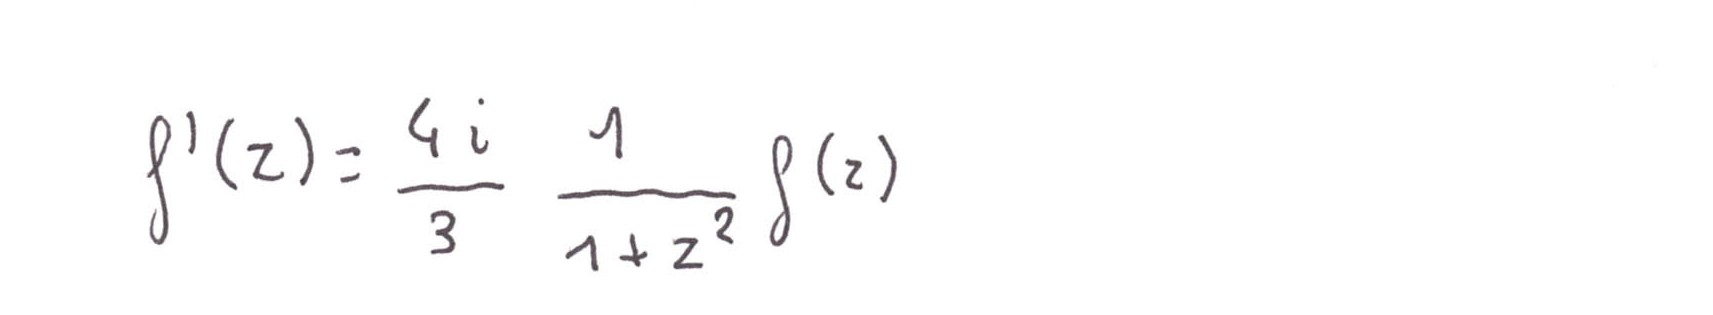 f'(z) = \frac{4i}{3} \frac{1}{1+z^2} f(z)